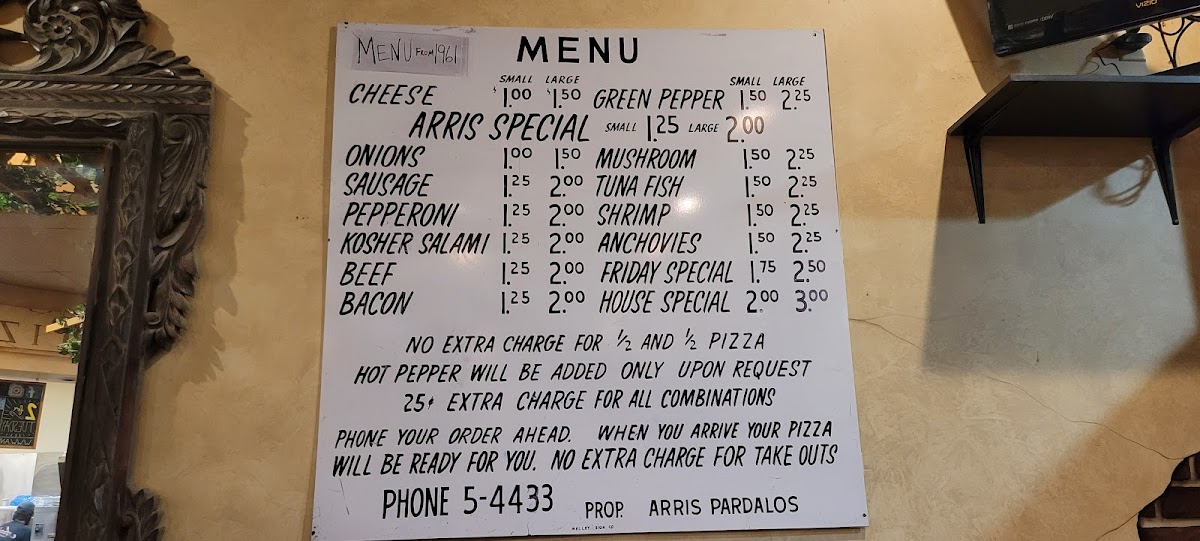 MENU FROM 1961
MENU
SMALL LARGE SMALL LARGE
CHEESE $1.00 $1.50 GREEN PEPPER 1.50 2.25
ARRIS SPECIAL SMALL 1.25 LARGE 2.00
ONIONS 1.00 1.50 MUSHROOM 1.50 2.25
SAUSAGE 1.25 2.00 TUNA FISH 1.50 2.25
PEPPERONI 1.25 2.00 SHRIMP 1.50 2.25
KOSHER SALAMI 1.25 2.00 ANCHOVIES 1.50 2.25
BEEF 1.25 2.00 FRIDAY SPECIAL 1.75 2.50
BACON 1.25 2.00 HOUSE SPECIAL 2.00 3.00
NO EXTRA CHARGE FOR 1/2 AND 1/2 PIZZA
HOT PEPPER WILL BE ADDED ONLY UPON REQUEST
25¢ EXTRA CHARGE FOR ALL COMBINATIONS
PHONE YOUR ORDER AHEAD. WHEN YOU ARRIVE YOUR PIZZA
WILL BE READY FOR YOU. NO EXTRA CHARGE FOR TAKE OUTS
PHONE 5-4433 PROP. ARRIS PARDALOS
VIZIO